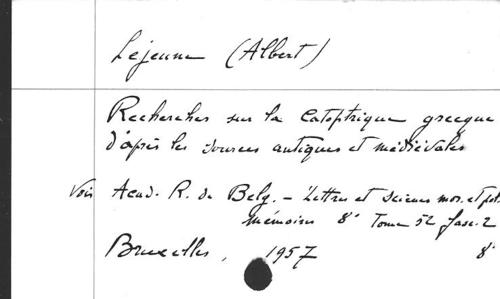 Lejeune (Albert)
Recherches sur la Catoptrique grecque
d'après les sources antiques et médiévales
Voir Acad. R. de Belg. - Lettres et Sciences mor. et pol.
mémoires 8° Tome 52 fasc. 2
Bruxelles, 1957 8°